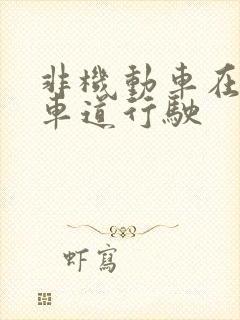 非機動車在
車道行駛
虾寫